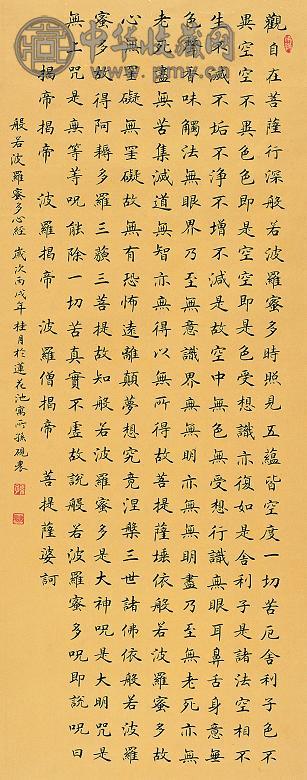 中华收藏网
www.sc798.com
觀自在菩薩行深般若波羅蜜多時照見五蘊皆空度一切苦厄舍利子色不
異空空不異色色即是空空即是色受想識亦復如是舍利子是諸法空相不
生不滅不垢不淨不增不減是故空中無色無受想行識無眼耳鼻舌身意無
色聲香味觸法無眼界乃至無意識界無無明亦無無明盡乃至無老死亦無
老死盡無苦集滅道無智亦無得以無所得故菩提薩埵依般若波羅蜜多故
心無罣礙無罣礙故無有恐怖遠離顛夢想究竟涅槃三世諸佛依般若波羅
蜜多故得阿耨多羅三藐三菩提故知般若波羅蜜多是大神呪是大明呪是
無上呪是無等等呪能除一切苦真實不虛故說般若波羅蜜多呪即說呪曰
揭帝揭帝 波羅揭帝 波羅僧揭帝 菩提薩婆訶
般若波羅蜜多心經 歲次丙戊年桂月於蓮花池寓所孫硯